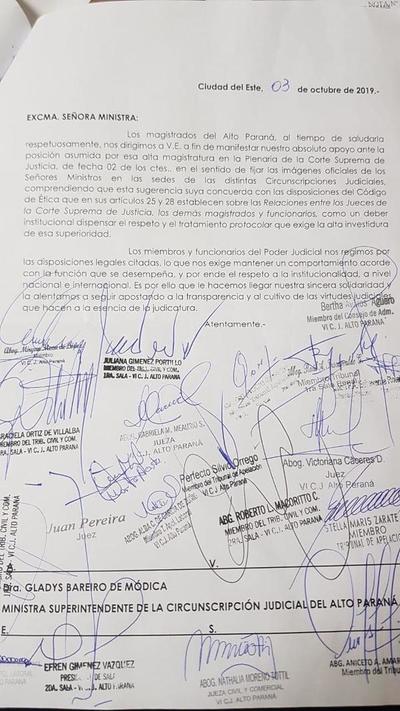 NOTA N°
Ciudad del Este, 03 de octubre de 2019.-
EXCMA. SEÑORA MINISTRA:
Los magistrados del Alto Paraná, al tiempo de saludarla
respetuosamente, nos dirigimos a V.E. a fin de manifestar nuestro absoluto apoyo ante la
posición asumida por esa alta magistratura en la Plenaria de la Corte Suprema de
Justicia, de fecha 02 de los ctes., en el sentido de fijar las imágenes oficiales de los
Señores Ministros en las sedes de las distintas Circunscripciones Judiciales,
comprendiendo que esta sugerencia suya concuerda con las disposiciones del Código
de Ética que en sus artículos 25 y 28 establecen sobre las Relaciones entre los Jueces de
la Corte Suprema de Justicia, los demás magistrados y funcionarios, como un deber
institucional dispensar el respeto y el tratamiento protocolar que exige la alta investidura
de esa superioridad.
Los miembros y funcionarios del Poder Judicial nos regimos por
las disposiciones legales citadas, lo que nos exige mantener un comportamiento acorde
con la función que se desempeña, y por ende el respeto a la institucionalidad, a nivel
nacional e internacional. Es por ello que le hacemos llegar nuestra sincera solidaridad y
la alentamos a seguir apostando a la transparencia y al cultivo de las virtudes judiciales
que hacen a la esencia de la judicatura.
Bertha Avalos Agüero
Miembro del Consejo de Adm.
VI C.J. ALTO PARANÁ
Atentamente.-
Miembro
VI C.J. Alto Paraná
JULIANA GIMENEZ PORTILLO
MIEMBRO DEL TRIB. CIVIL Y COM.
1RA. SALA - VI C.J. ALTO PARANA
Miembro Tribunal
GRACIELA ORTIZ DE VILLALBA
MIEMBRO DEL TRIB. CIVIL Y COM.
SALA - VI C.J. ALTO PARANÁ
ABG. GABRIELA M.
JUEZA
VI C.J. ALTO PARANÁ
Perfecto Silvio Orrego
Miembro del Tribunal de Apelación
VI C.J. Alto Paraná
Abog. Victoriana Cáceres D.
Juez
VI C.J Alto Paraná
Juan Pereira
Juez
ABG. ROBERTO L. MACORITTO C.
MIEMBRO DEL TRIB. CIVIL Y COM.
SALA - VI C.J. ALTO PARANA
STELLA MARIS ZARATE
MIEMBRO
TRIBUNAL DE APELACION
DEL TRIB. CIVIL Y COM.
SALA - VI C.J. ALTO PARANÁ
V.
Dra. GLADYS BAREIRO DE MÓDICA
MINISTRA SUPERINTENDENTE DE LA CIRCUNSCRIPCIÓN JUDICIAL DEL ALTO PARANÁ
E. S.
EFREN GIMENEZ VAZQUEZ
2DA. SALA - VI C.J. ALTO PARANA
ABOG. NATHALIA MORENO
JUEZA CIVIL Y COMERCIAL
VI C.J. ALTO PARANÁ
ABG. ANICETO A.
Miembro del